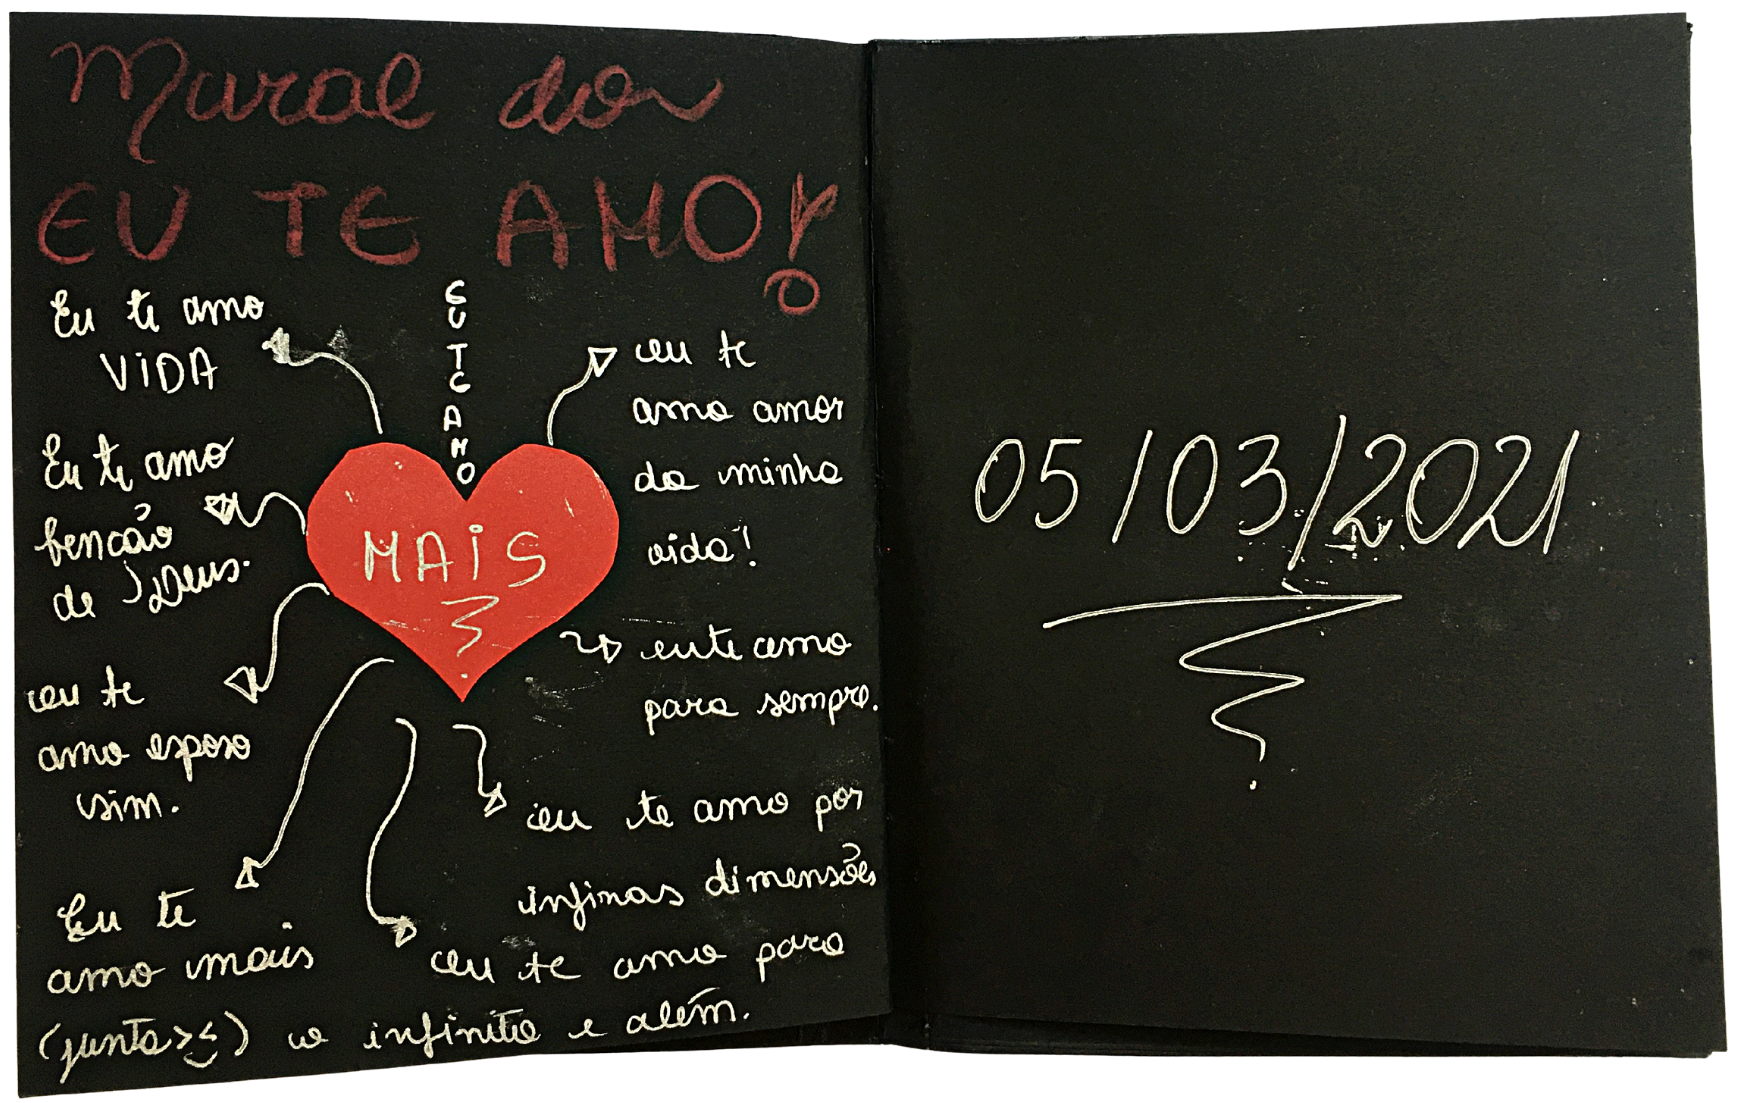 Mural dos
EU TE AMO!
Eu te amo
ViDA
EU TE AMO
eu te
amo amor
da minha
vida!
Eu te amo
bencão
de Deus.
MAiS
eu te
amo esposo
sim.
eu te amo
para sempre.
eu te amo por
infinas dimensões
Eu te
amo mais
(junto><)
eu te amo para
o infinito e além.
05/03/2021